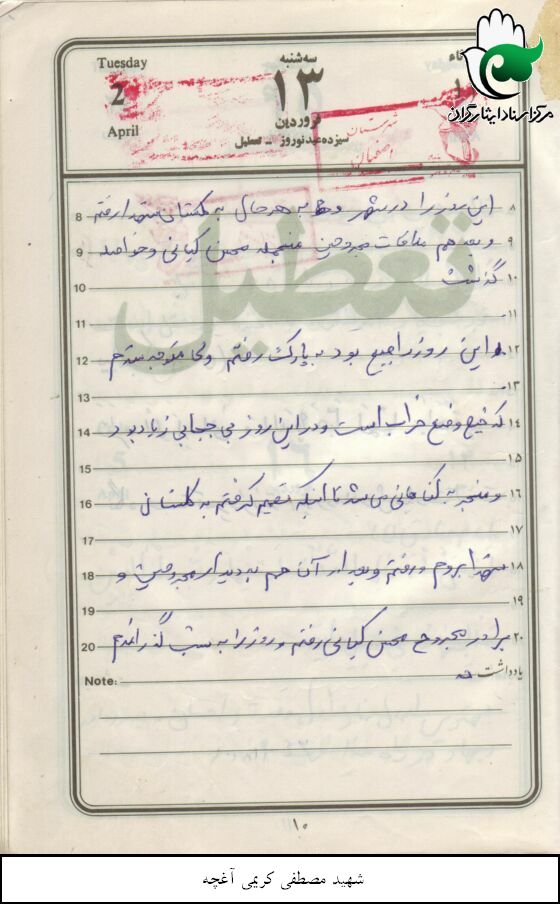 Tuesday
2
April
سه‌شنبه
۱۳
فروردین
سیزده عید نوروز - تعطیل
شهرستان
اصفهان
مرکز اسناد ایثارگران
تعطیل
8 این روز را در شهر به هر حال به گلستان شهدا رفتم ۸
9 و بعد هم ملاقات مجروحین منجمله محسن کیانی و خواهد ۹
10 گذشت ۱۰
11 ۱۱
12 این روز راجع بود به پارک رفتم ولی متوجه شدم ۱۲
13 ۱۳
14 که خیلی وضع خراب است و در این روز بی حجابی زیاد بود ۱۴
15 ۱۵
16 و منجر به گناهانی می شد تا اینکه تصمیم گرفتم به گلستان ۱۶
17 ۱۷
18 شهدا بروم و رفتم و بعد از آن هم به دیدار مجروحین و ۱۸
19 ۱۹
20 برادر مجروح محسن کیانی رفتم و روز را به شب گذراندم ۲۰
Note: یادداشت
۱۰
شهید مصطفی کریمی آغچه